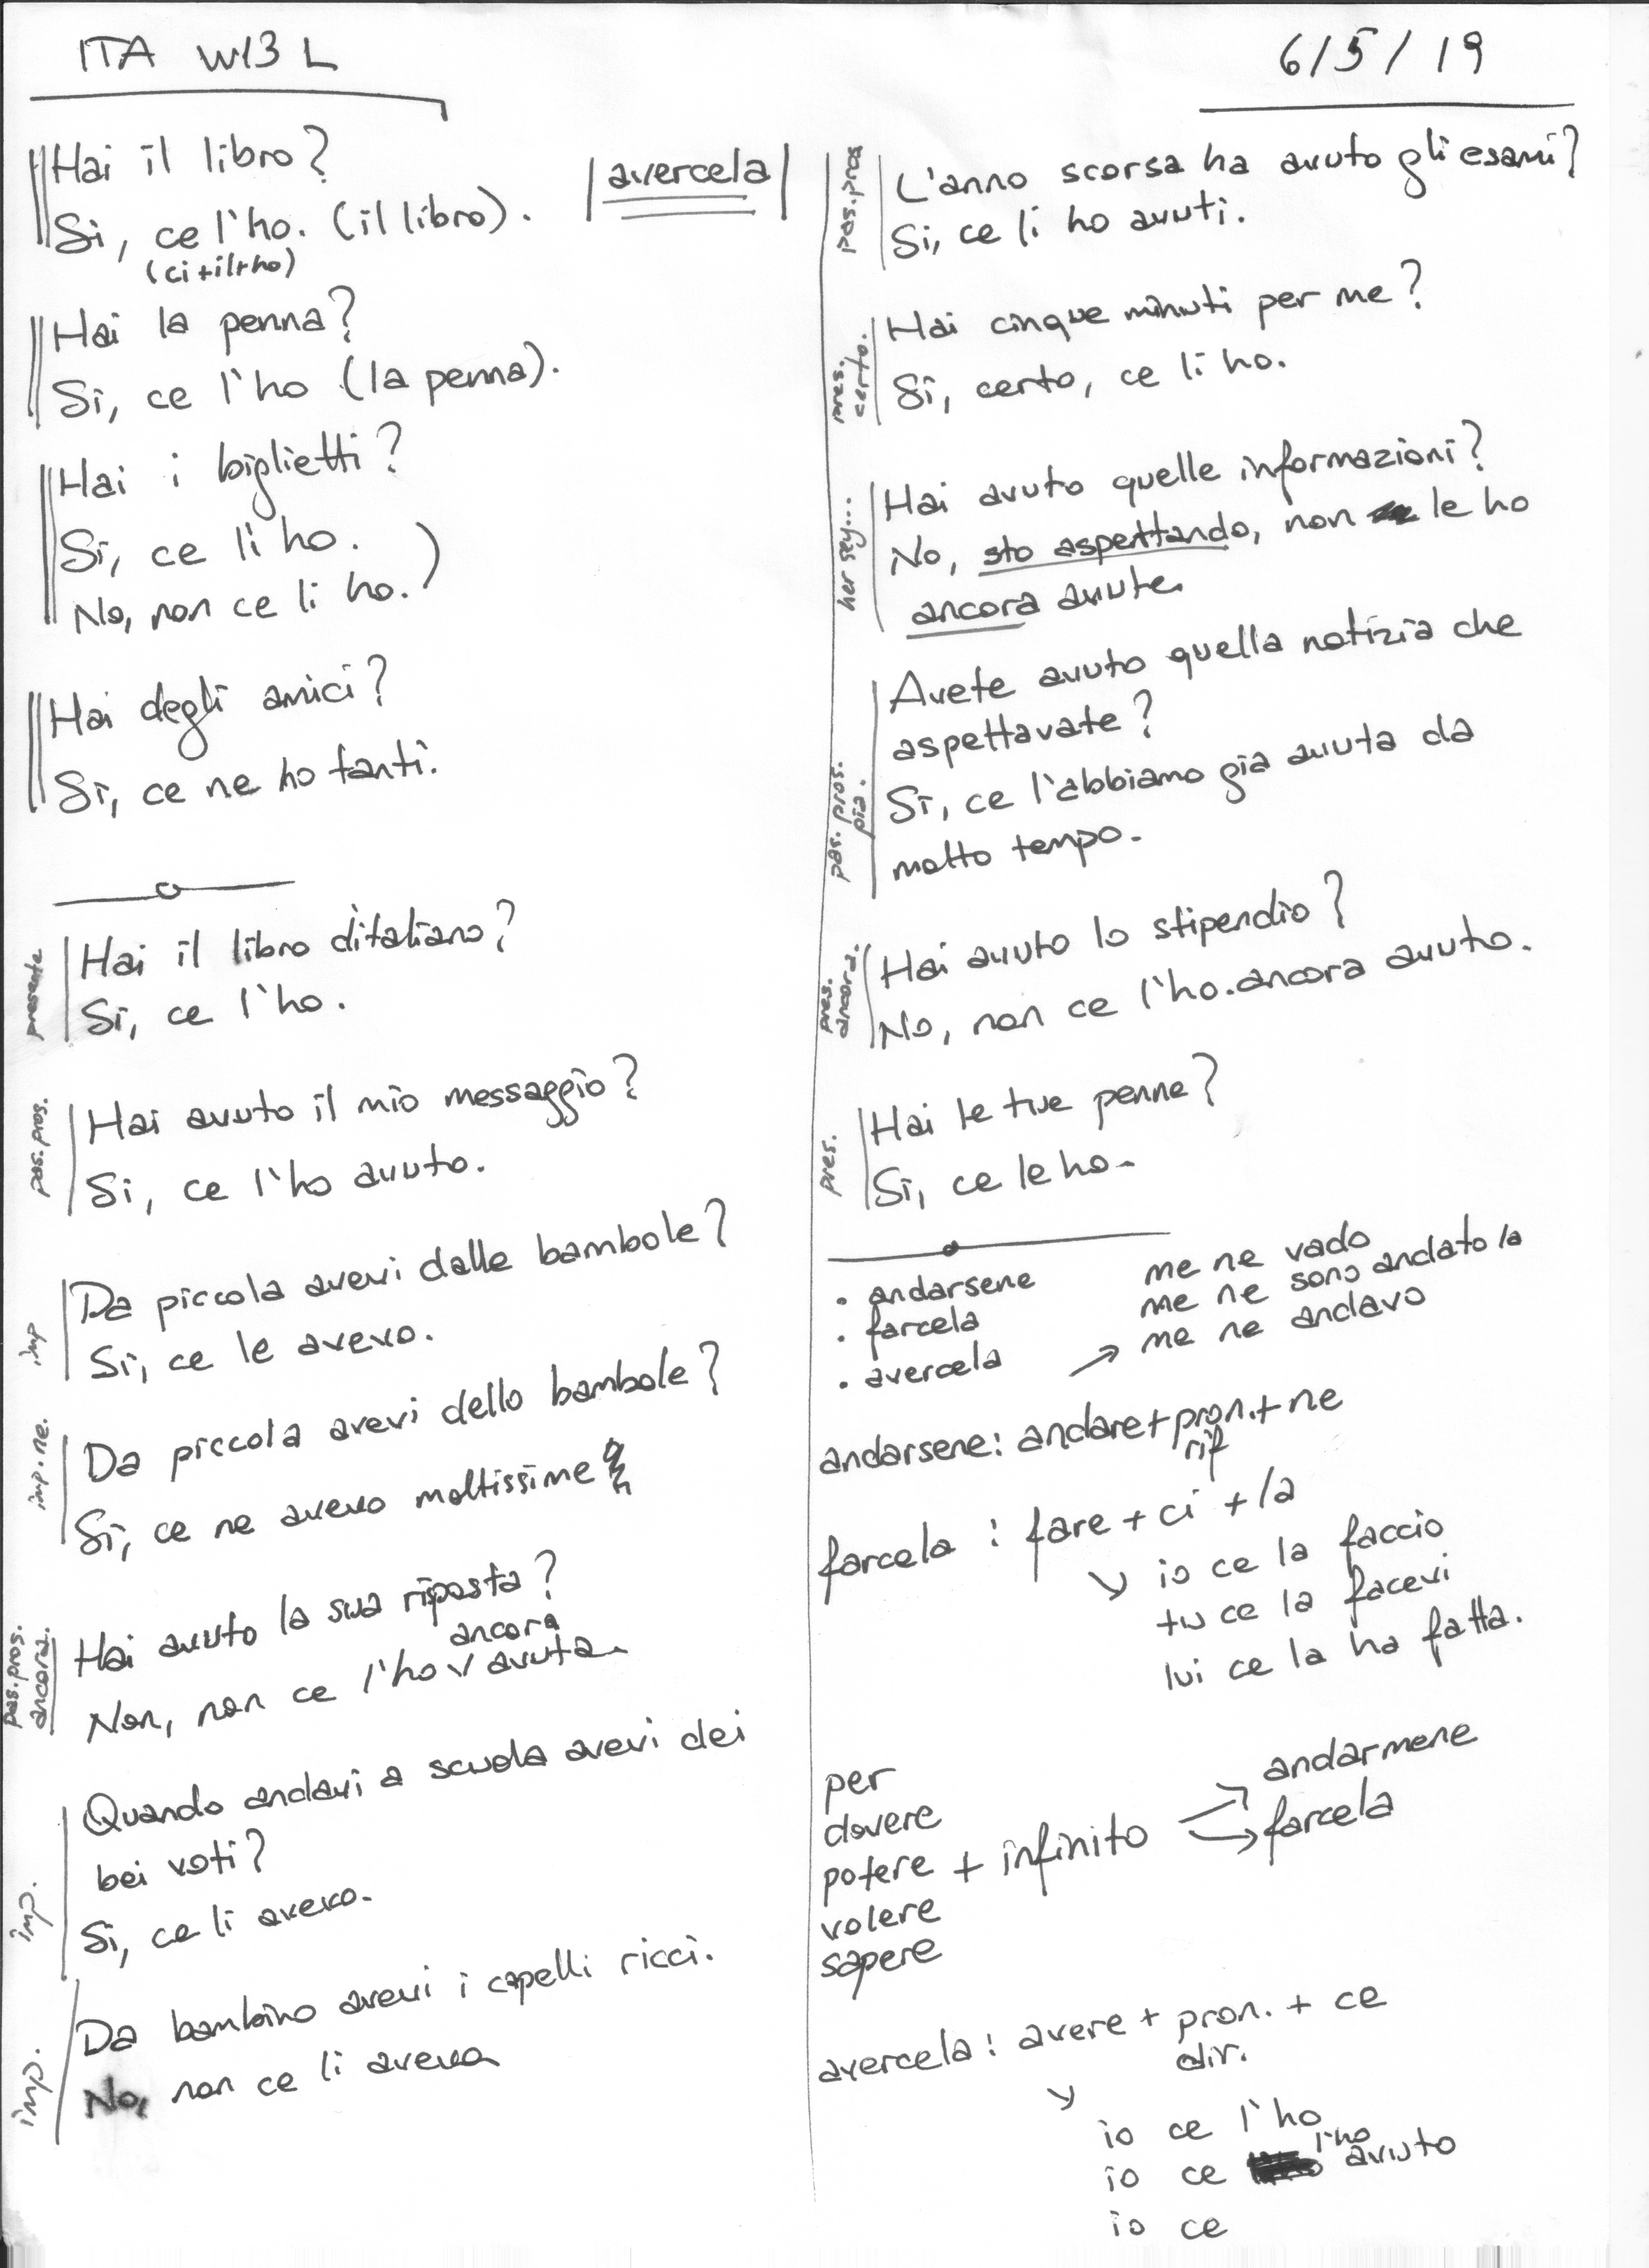 ITA W13 L
6/5/19
Hai il libro?
Si, ce l'ho. (il libro).
(ci+il+ho)
avercela
Hai la penna?
Si, ce l'ho (la penna).
Hai i biglietti?
Si, ce li ho.
No, non ce li ho.)
Hai degli amici?
Si, ce ne ho tanti.
presente
Hai il libro d'italiano?
Si, ce l'ho.
pas. pros.
Hai avuto il mio messaggio?
Si, ce l'ho avuto.
imp
Da piccola avevi dalle bambole?
Si, ce le avevo.
imp. ne.
Da piccola avevi dello bambole?
Si, ce ne avevo moltissime
pas. pros.
ancora.
Hai avuto la sua riposta?
ancora
Non, non ce l'ho avuta.
imp.
Quando andavi a scuola avevi dei
bei voti?
Si, ce li avevo.
imp.
Da bambino avevi i capelli ricci.
No, non ce li aveva
pas. pros
L'anno scorsa ha avuto gli esami?
Si, ce li ho avuti.
pres.
certo.
Hai cinque minuti per me?
Si, certo, ce li ho.
Hai avuto quelle informazioni?
No, sto aspettando, non le ho
ancora avute.
pas. pros.
Avete avuto quella notizia che
aspettavate?
Si, ce l'abbiamo già avuta da
molto tempo.
pres.
ancora.
Hai avuto lo stipendio?
No, non ce l'ho.ancora avuto.
pres.
Hai le tue penne?
Si, ce le ho.
• andarsene
• farcela
• avercela
me ne vado
me ne sono andato/a
→ me ne andavo
andarsene: andare+pron.+ne
rif
farcela : fare + ci + la
↘ io ce la faccio
tu ce la facevi
lui ce la ha fatta.
per
dovere
potere + infinito
volere
sapere
andarmene
farcela
avercela: avere + pron. + ce
dir.
io ce l'ho
io ce l'ho avuto
io ce